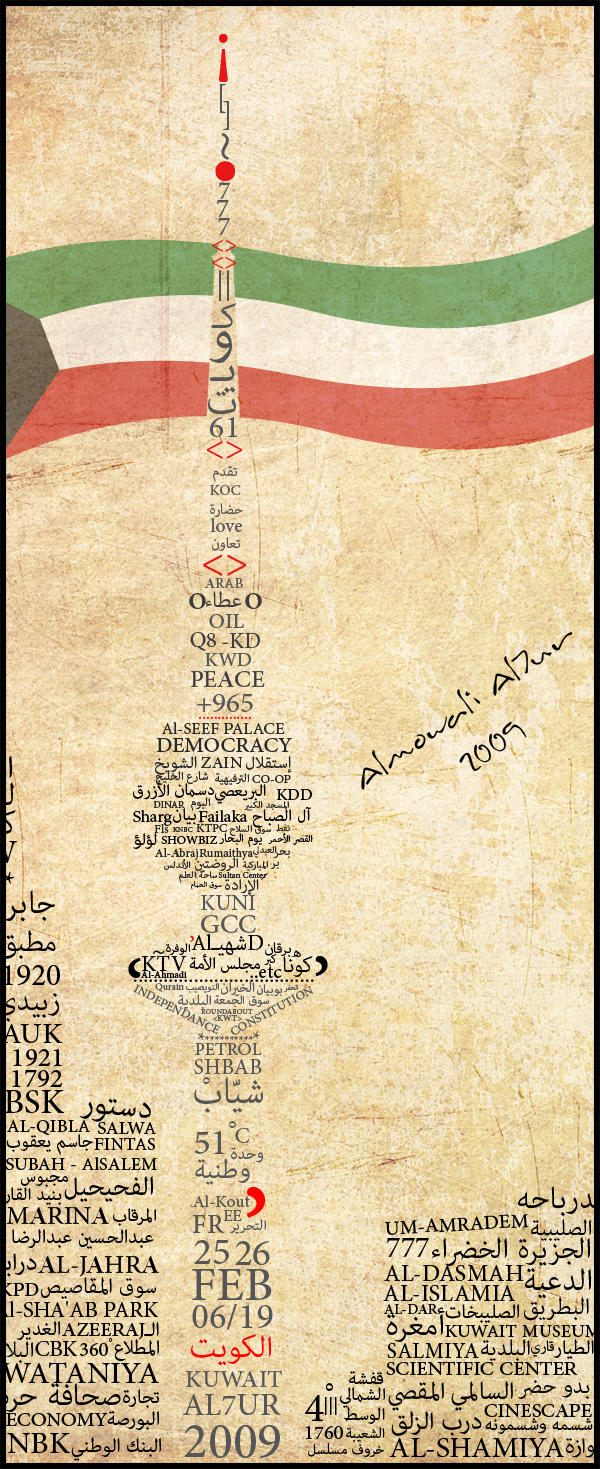 777
< >
< >
61
< >
تقدم
KOC
حضارة
love
تعاون
< >
ARAB
Oعطاء O
OIL
Q8 -KD
KWD
PEACE
+965
Almowali Al7ur
2009
Al-SEEF PALACE
DEMOCRACY
إستقلال ZAIN الشويخ
شارع الخليج الترفيهية CO-OP
البريعصي دسمان الأزرق KDD
DINAR اليوم المسجد الكبير
Sharq بيان Failaka آل الصباح
Fls KNBC KTPC سوق السلاح نفط
لؤلؤ SHOWBIZ يوم البحار القصر الأحمر
Al-Abraj Rumaithya
الروضتين المباركية بر
ساحة العلم Sultan Center
الإرادة
KUNI
GCC
الوفرة برقان
KTV مجلس الأمة كونا
Al-Ahmadi etc..
Qurain النويصيب الخيران بوبيان قطر
سوق الجمعة البلدية
ROUNDABOUT
<KWT>
INDEPENDANCE CONSTITUTION
PETROL
SHBAB
شيّاب
51°C
وحدة
وطنية
Al-Kout
FREE التحرير
25 26
FEB
06/19
الكويت
KUWAIT
AL7UR
2009
جابر
مطبق
1920
زبيدي
AUK
1921
1792
BSK دستور
AL-QIBLA SALWA
جاسم يعقوب FINTAS
SUBAH - AlSALEM
مجبوس
الفحيحيل بنيد القار
MARINA المرقاب
عبدالحسين عبدالرضا
AL-JAHRA
KPD سوق المقاصيص
Al-SHA'AB PARK
AZEERAJـال الغدير
CBK 360° المطلاع
WATANIYA
تجارة صحافة
ECONOMY البورصة
NBK البنك الوطني
درباحه
UM-AMRADEM الصليبية
777 الجزيرة الخضراء
AL-DASMAH الدعية
AL-ISLAMIA
AL-DAR الصليبخات البطريق
أمغرة KUWAIT MUSEUM
SALMIYA البلدية قاري الطيار
SCIENTIFIC CENTER
قفشة
الشمالي السالمي المقصي بدو حضر
4 الوسط CINESCAPE
1760 الشعيبة درب الزلق شسمه وشسمونه
خروف مسلسل AL-SHAMIYA